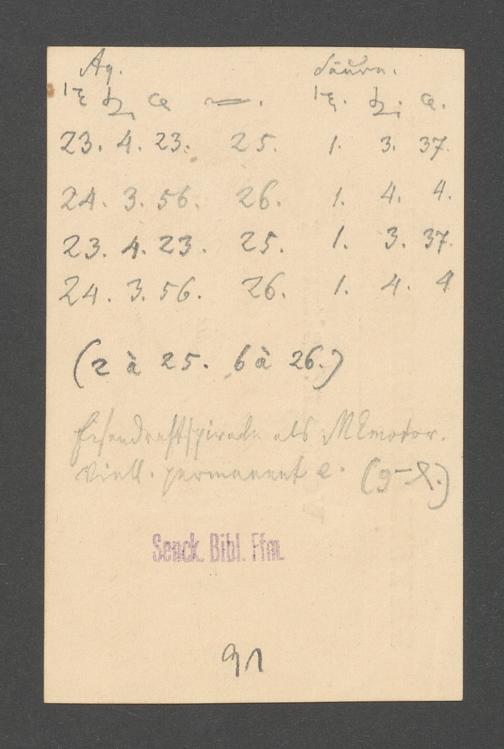 Aq. Säure.
23. 4. 23. 25. 1. 3. 37.
24. 3. 56. 26. 1. 4. 4.
23. 4. 23. 25. 1. 3. 37.
24. 3. 56. 26. 1. 4. 4
(2 à 25. 6 à 26.)
als
Viell. permanent e.
Senck. Bibl. Ffm.
91